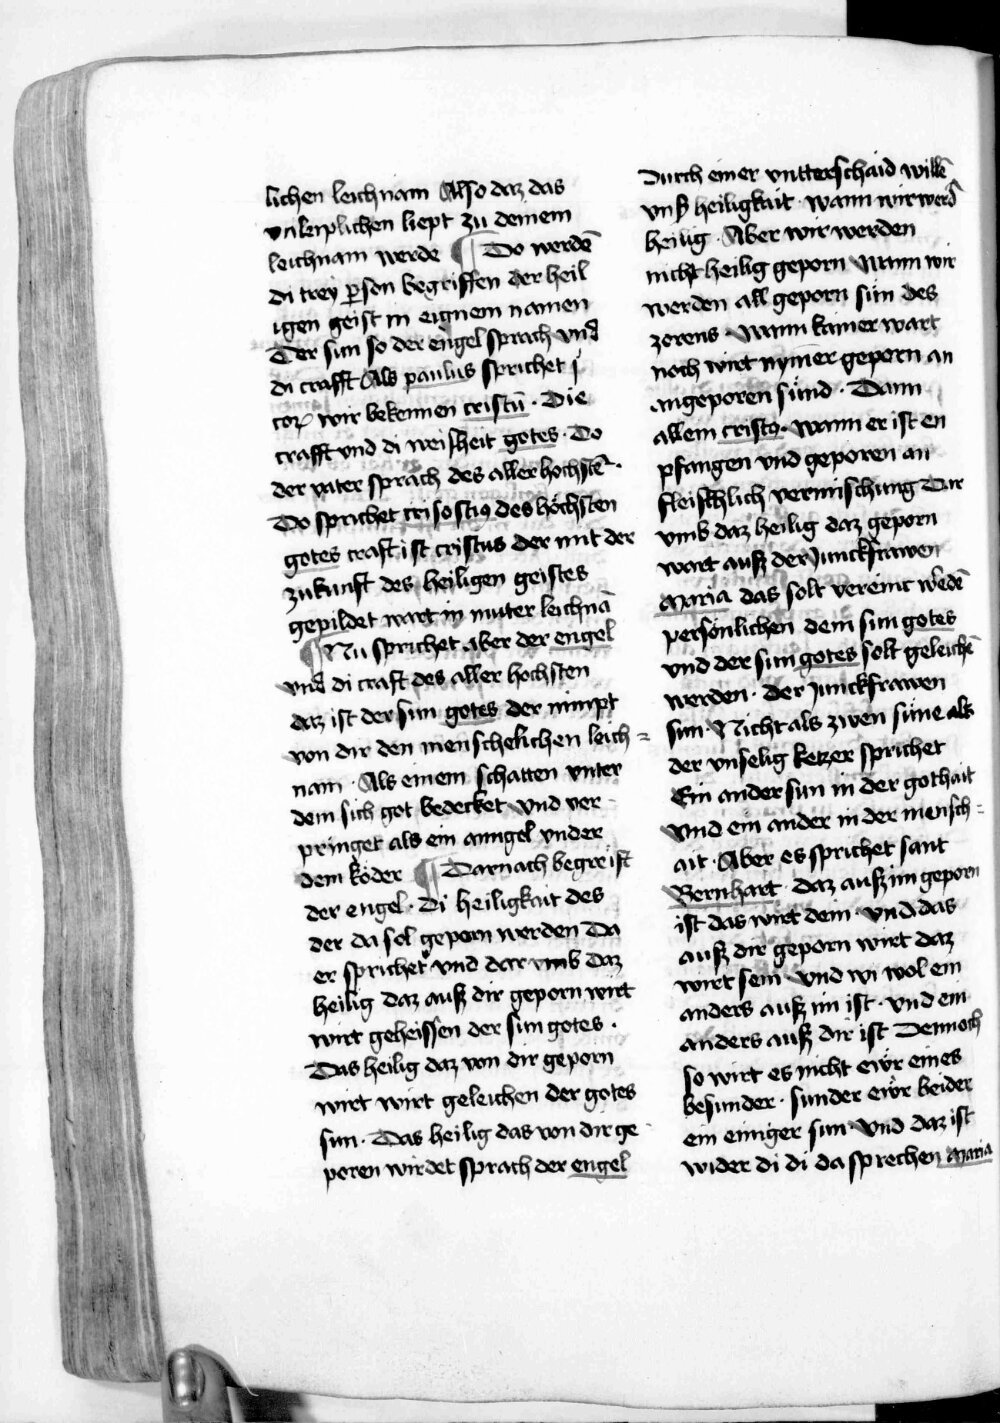 lichen leichnam Also daz das
vnleiplichen liept zu deinem
leichnam werde ¶ Do werdē
di trey ꝑson begriffen der heil
igen geist in eignem namen
Der sun so der engel sprach vnd
di crafft Als paulus sprichet j
cor wir bekennen cristū · Die
crafft vnd di weisheit gotes · Do
der vater sprach des aller hochstē ·
Do sprichet crisostiꝰ des höchsten
gotes craft ist cristus der mit der
zukunft des heiligen geistes
gepildet wart in muter leichnā
¶ Nu sprichet aber der engel
vnd di craft des aller hochsten
daz ist der sun gotes der nimpt
von dir den menschelichen leich =
nam · Als einem schatten vnter
dem sich got bedecket vnd ver
pringet als ein anngel vnder
dem köder ¶ Darnach begreift
der engel · Di heiligkait des
der da sol geporn werden Da
er sprichet vnd dar vmb daz
heilig daz auß dir geporn wirt
wirt geheissen der sun gotes ·
Das heilig daz von dir geporn
wirt wirt geleichen der gotes
sun · Das heilig das von dir ge
poren wirdet sprach der engel
Durch einer vntterschaid willē
vnß heiligkait · wann wir werd
heilig · Aber wir werden
nicht heilig geporn Wann wir
werden all geporn sün des
zorens · Wann kainer wart
noch wirt nymer geporn an
angeporen sünd · Dann
allein cristꝰ · Wann er ist en
pfangen vnd geporen an
fleischlich vermischung Dar
vmb daz heilig daz geporn
wart auß der Junckfrawen
Maria das solt vereint wedē
persönlichen dem sun gotes
vnd der sun gotes solt geleichē
werden · der junckfrawen
sun · Nicht als zwen süne als
der vnselig ketzer sprichet
Ein ander sun in der gothait
vnd ein ander in der mensch =
ait · Aber es sprichet sant
Bernhart · daz auß im geporn
ist das wirt dein · vnd das
auß dir geporn wirt daz
wirt sein · vnd wi wol ein
anders auß im ist · vnd ein
anders auß dir ist Dennoch
so wirt es nicht ewr eines
besunder · sunder ewr beider
ein einiger sun vnd daz ist
wider di di da sprechen Maria